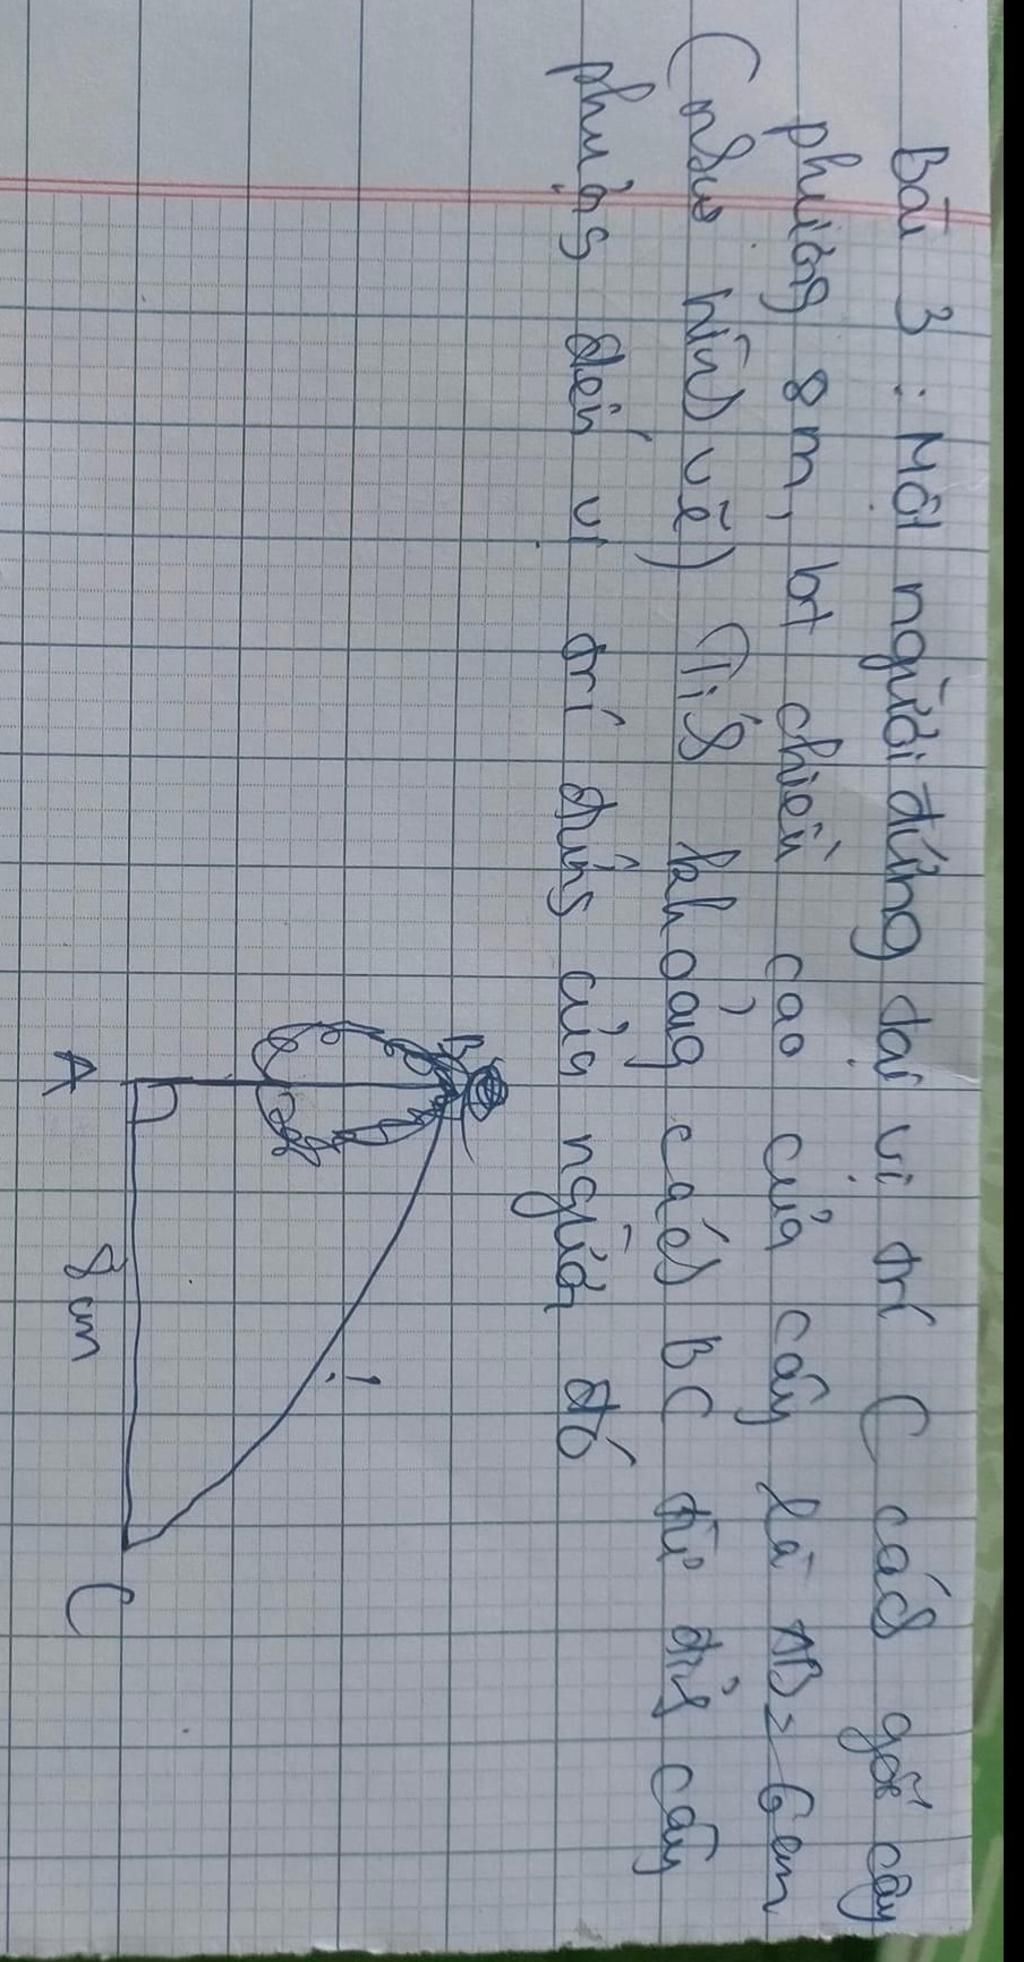 Bài 3 : Một người đứng tại vị trí C cách gốc cây
phượng 8m, bt chiều cao của cây là AB = 6cm
(như hình vẽ) Tính khoảng cách BC từ đỉnh cây
phượng đến vị trí đứng của người đó
B
?
A
8cm
C